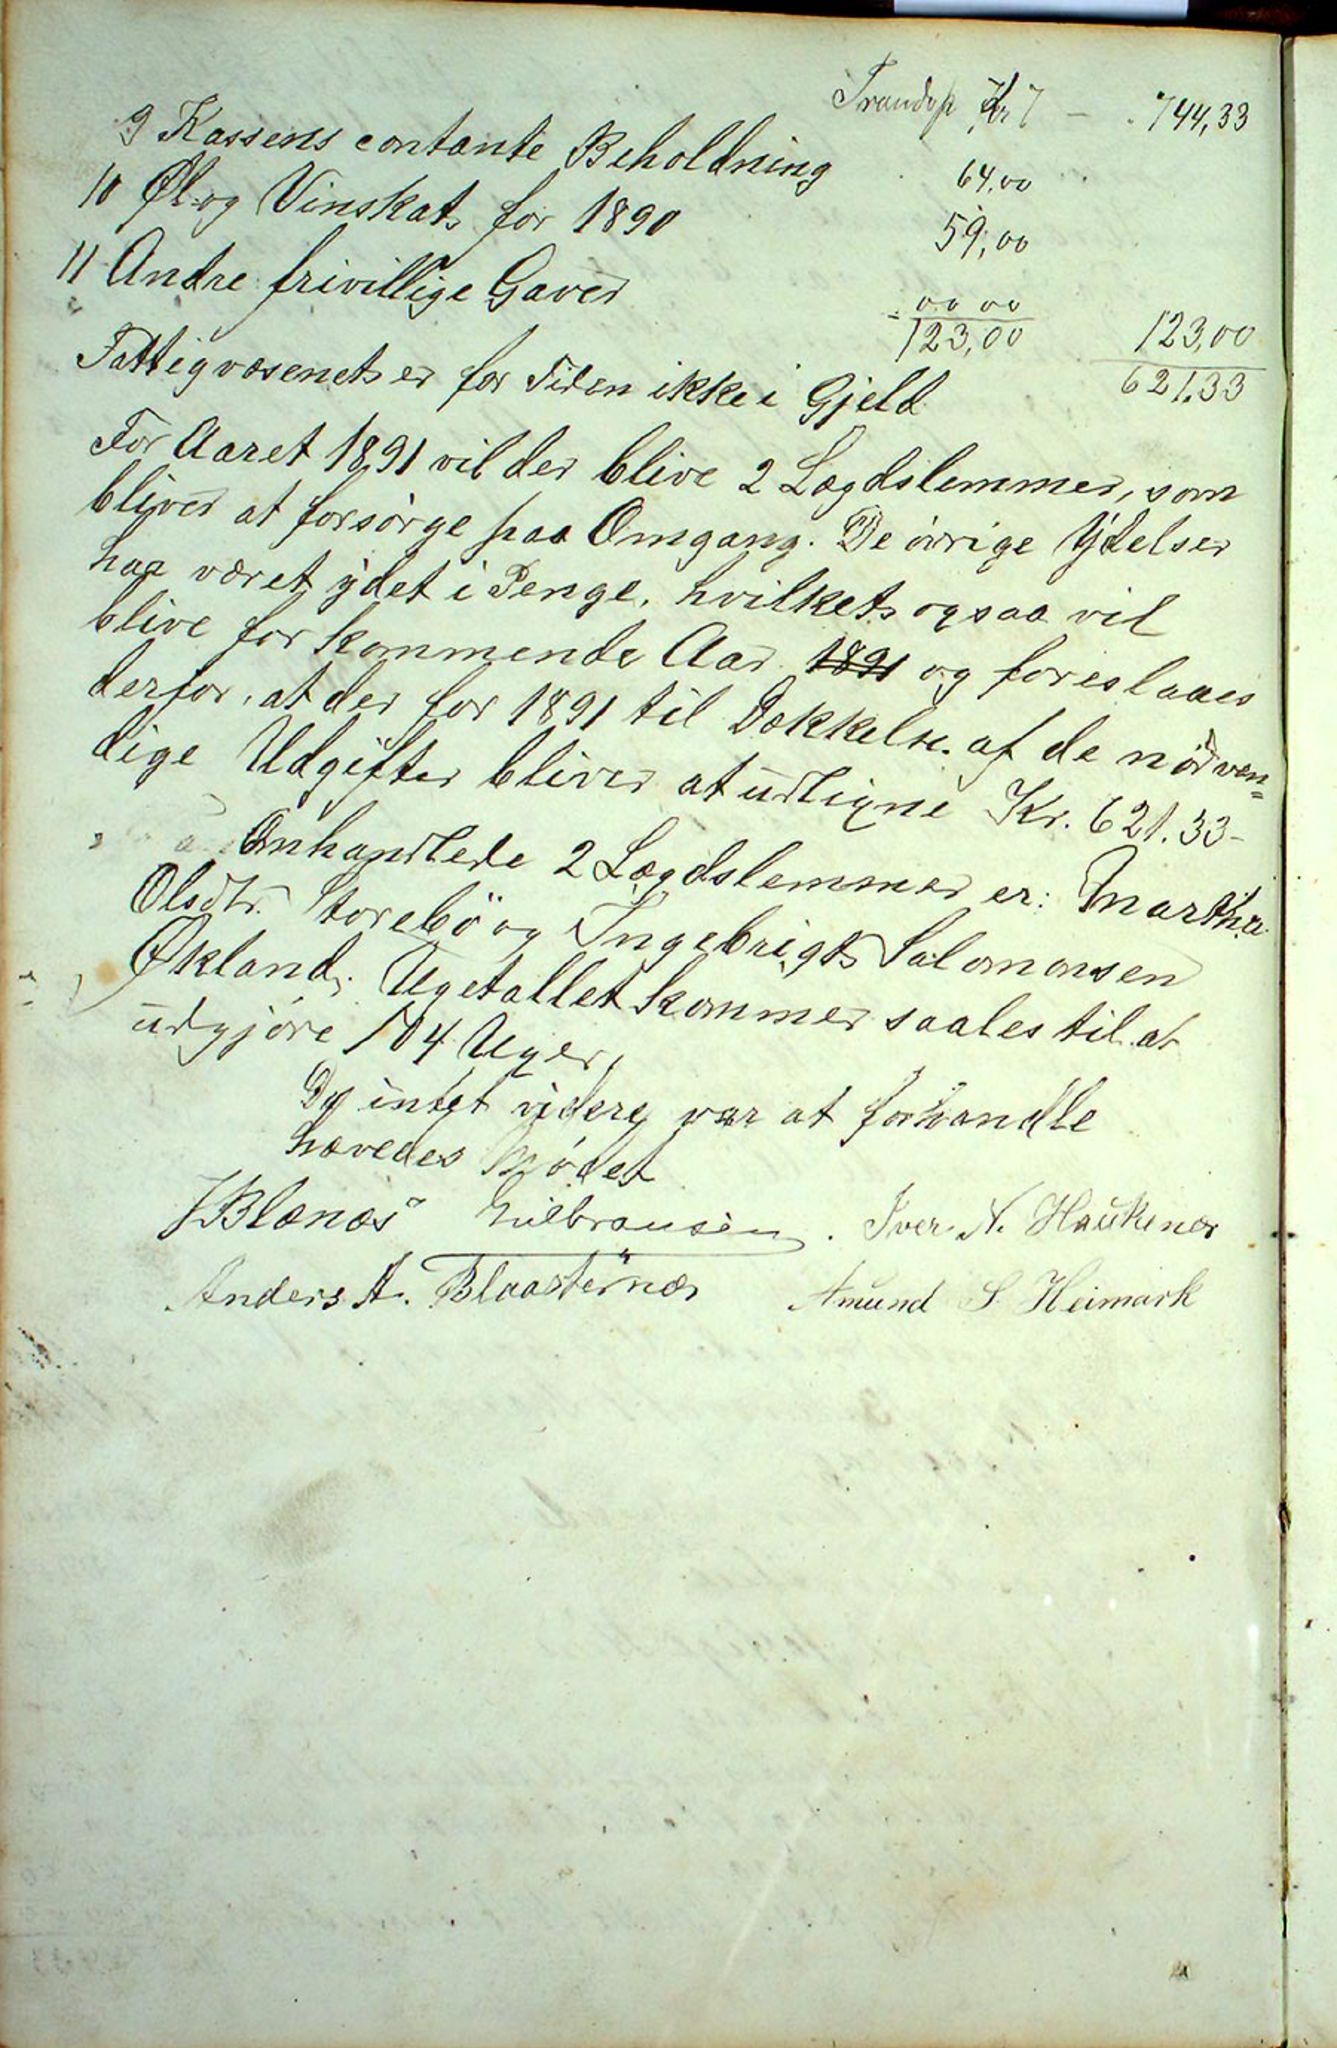 Transp Kr 7 — 744,33
9 Kassens contante Beholdning 64,00
10 Øl og Vinskat for 1890 59,00
11 Andre frivillige Gaver 00 00
123,00 123,00
Fattigvæsenet er for Tiden ikke i Gjeld 621.33
For Aaret 1891 vil der blive 2 Lægdslemmer, som
bliver at forsörge paa Omgang. De övrige Ydelser
har været ydet i Penge, hvilket ogsaa vil
blive for kommende Aar 1891 og foreslaaes
derfor, at der for 1891 til Dækkelse af de nödven=
dige Udgifter bliver at udligne Kr. 621.33-
Omhandlede 2 Lægdslemmer er: Martha
Olsdtr. Storebö og Ingebrigt Salomonsen
Økland. Ugetallet kommer saales til at
udgjöre 104 Uger.
Da intet videre var at forhandle
hævedes Mödet
Blænæs . Iver N. Haukenæs
Anders A. Blaasternæs Amund S. Heimark